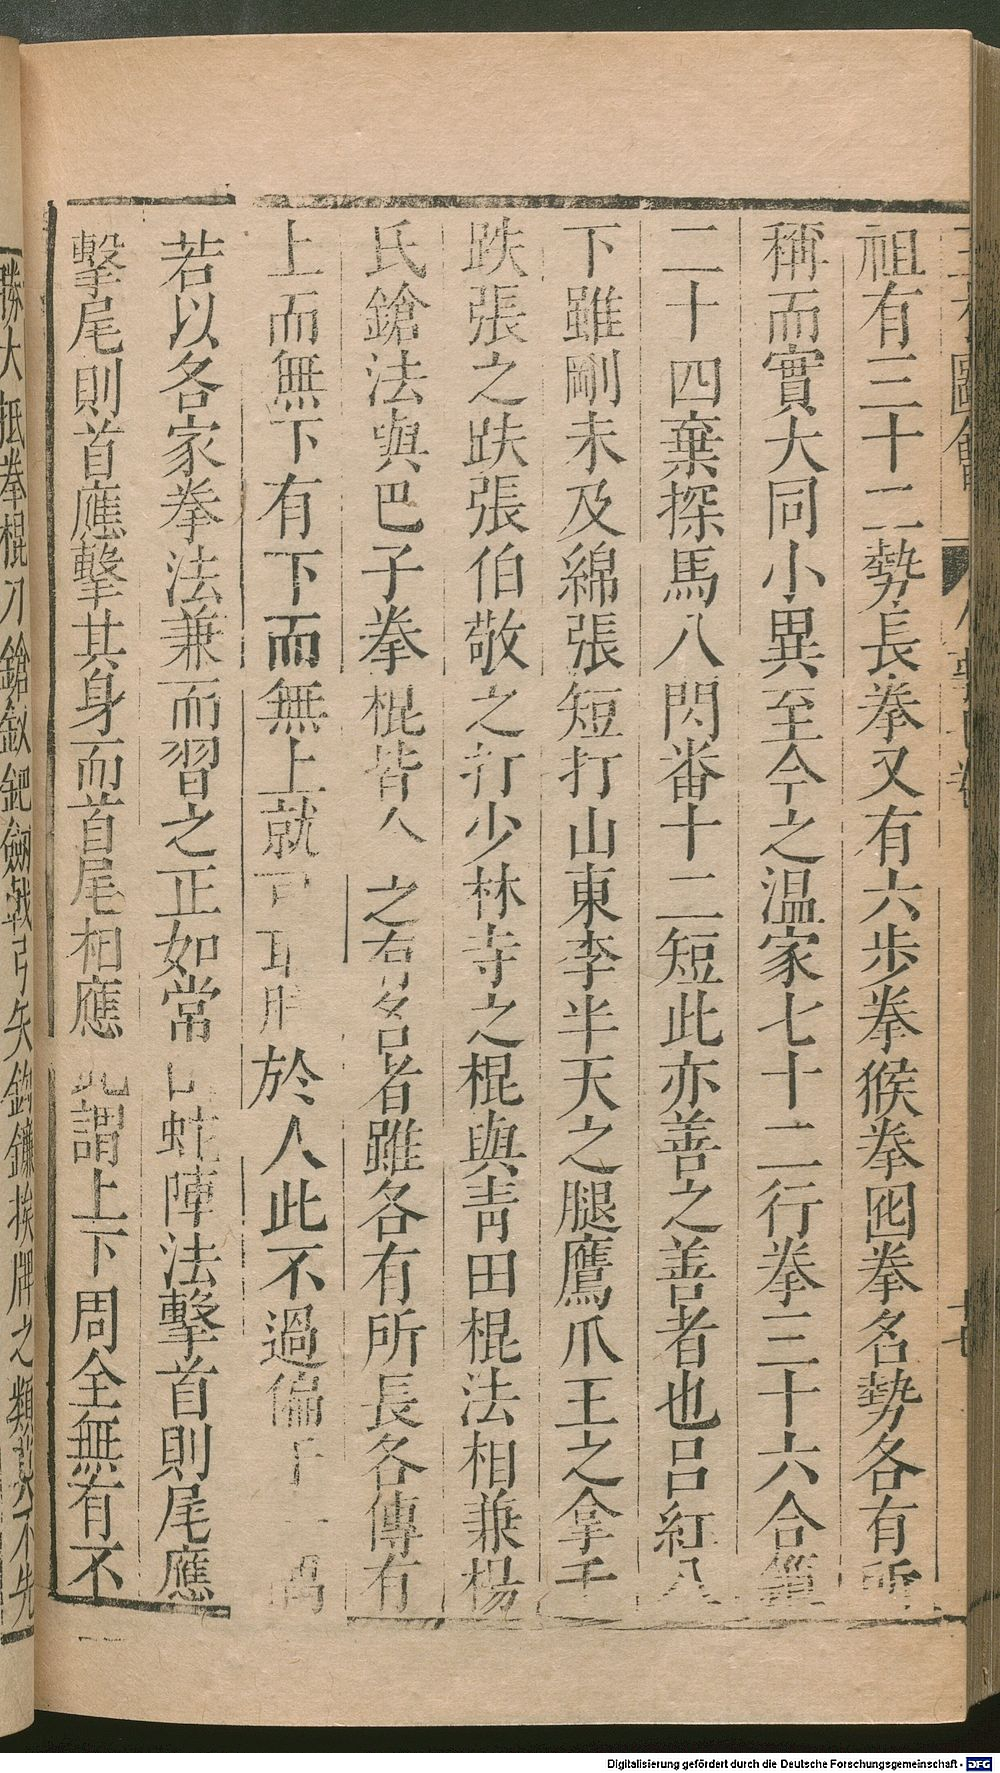 祖有三十二勢長拳又有六步拳猴拳囮拳名勢各有所
稱而實大同小異至今之溫家七十二行拳三十六合鎖
二十四棄探馬八閃番十二短此亦善之善者也呂紅八
下雖剛未及綿張短打山東李半天之腿鷹爪王之拿千
跌張之跌張伯敬之打少林寺之棍與靑田棍法相兼楊
氏鎗法與巴子拳棍皆 之有名者雖各有所長各傳有
上而無下有下而無上就可取勝於人此不過偏于一隅
若以各家拳法兼而習之正如常 蛇陣法擊首則尾應
擊尾則首應擊其身而首尾相應此謂上下周全無有不
勝大抵拳棍刀鎗釵鈀劒戟弓矢鉤鐮挨牌之類莫不先
Digitalisierung gefördert durch die Deutsche Forschungsgemeinschaft - DFG